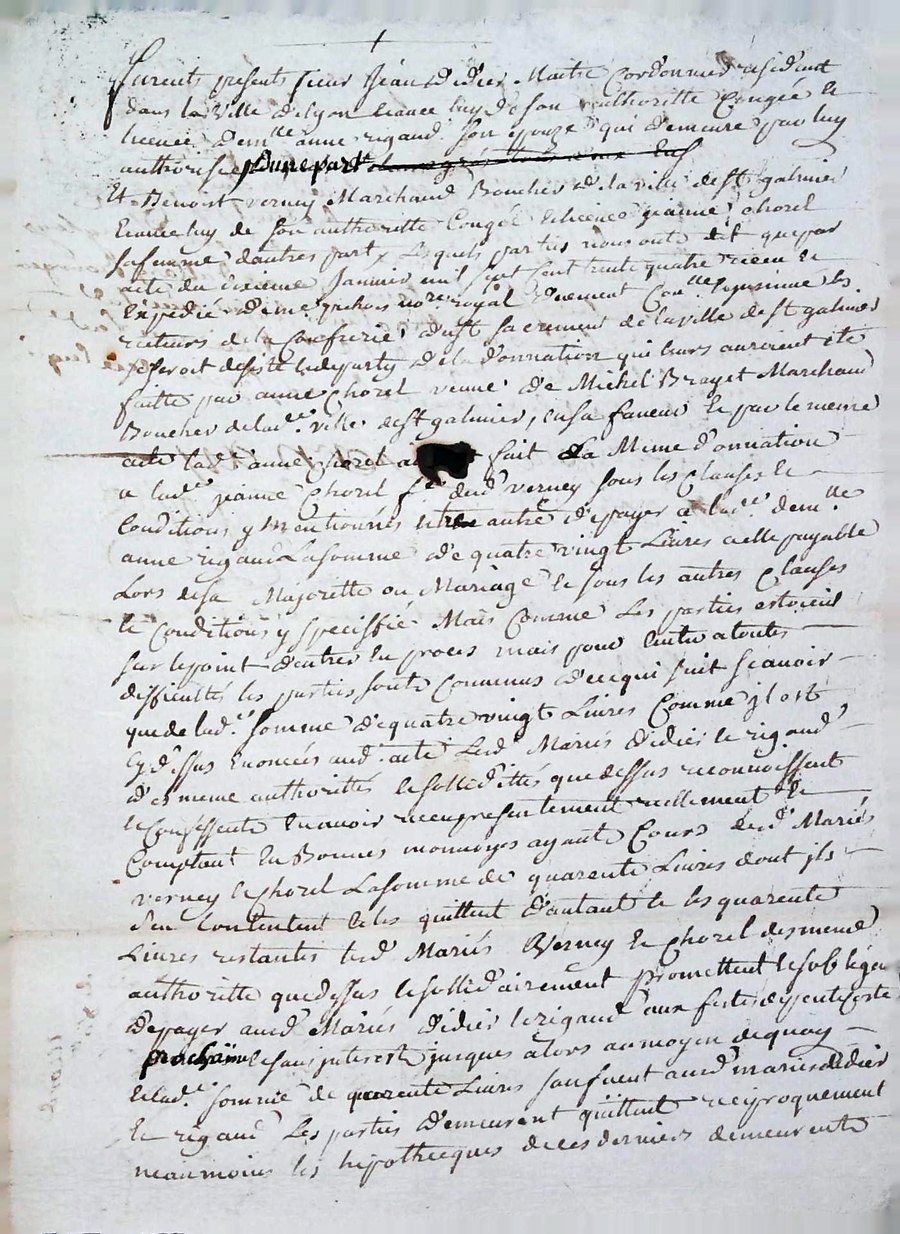 furents presents sieur Jean Didier Maitre Cordonnier residant
dans la ville de lyon licance luy de son authoritte Congée et
licence dem.lle anne rigaud son epouze qui demeure par luy
authorisée d'une part
Et Benoist verney Marchand Boucher de la ville de st galmier
de son authoritte Congée et licence jeanne chorel
sa femme d'autres part, Lesquels parties nous onts dit que par
acte du dixieme Janvier mil sept cent trante quatre receu et
Expedié de me pichon no.re royal
recteurs de la Confrerie du st sacrement de la ville de st galmier
se seroit deste et departy de la donnation qui leurs auroient ete
faitte par anne Chorel veuve de Michel Brayet Marchand
Boucher de lad.e ville de st galmier, en sa faveur et par le meme
acte lad.e anne chorel fait La Meme donnation
a lad.e jeanne Chorel f.e dud verney sous les Clauses et
Conditions y mentionnés entre autre de payer a lad.e dem.lle
anne rigaud La somme de quatre vingt Livres a elle payable
Lors de sa Majorette ou Mariage et sous les autres Clauses
et Conditions y speciffié Mais Comme Les parties estoient
sur le point d'entrer en proces mais pour Eviter a toutes
difficultés les parties sonts Convenus de ce qui suit scavoir
que de lad.e somme de quatre vingt Livres Comme jl est
Cy dessus Enoncées aud. acte Lesd Mariés didier et rigaud
de meme authorittés et sollidittés que dessus reconnoissent
et Confessents En avoir receu presentement reellement et
Comptent En Bonnes monnoyes ayants Cours desd Mariés
verney et Chorel La somme de quarente Livres dont jls
s'en Contentent et les quittent d'autant et les quarente
Livres restantes lesd Mariés Verney et Chorel de meme
authoritte que dessus et sollidairement promettent et sobligen
de payer ausd Mariés didier et rigaud aux festes de pentecoste
prochaine et sans jnterest jusques alors au moyen de quoy
et lad.e somme de quarente Livres ausd mariés didier
et rigaud Les parties demeurent quittent reciproquement
neanmoins les hipotheques de ces derniers demeurents